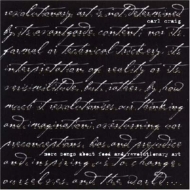 revolutionary art is not determined
carl craig
by its avant-garde content nor its
formal or technical trickery, its
interpretation of reality or its
verisimilitude, but, rather, by how
much it revolutionises our thinking
and imagination, overturning our
preconceptions, bias, and prejudice
more songs about food and revolutionary art
and inspiring us to change
ourselves and the world.